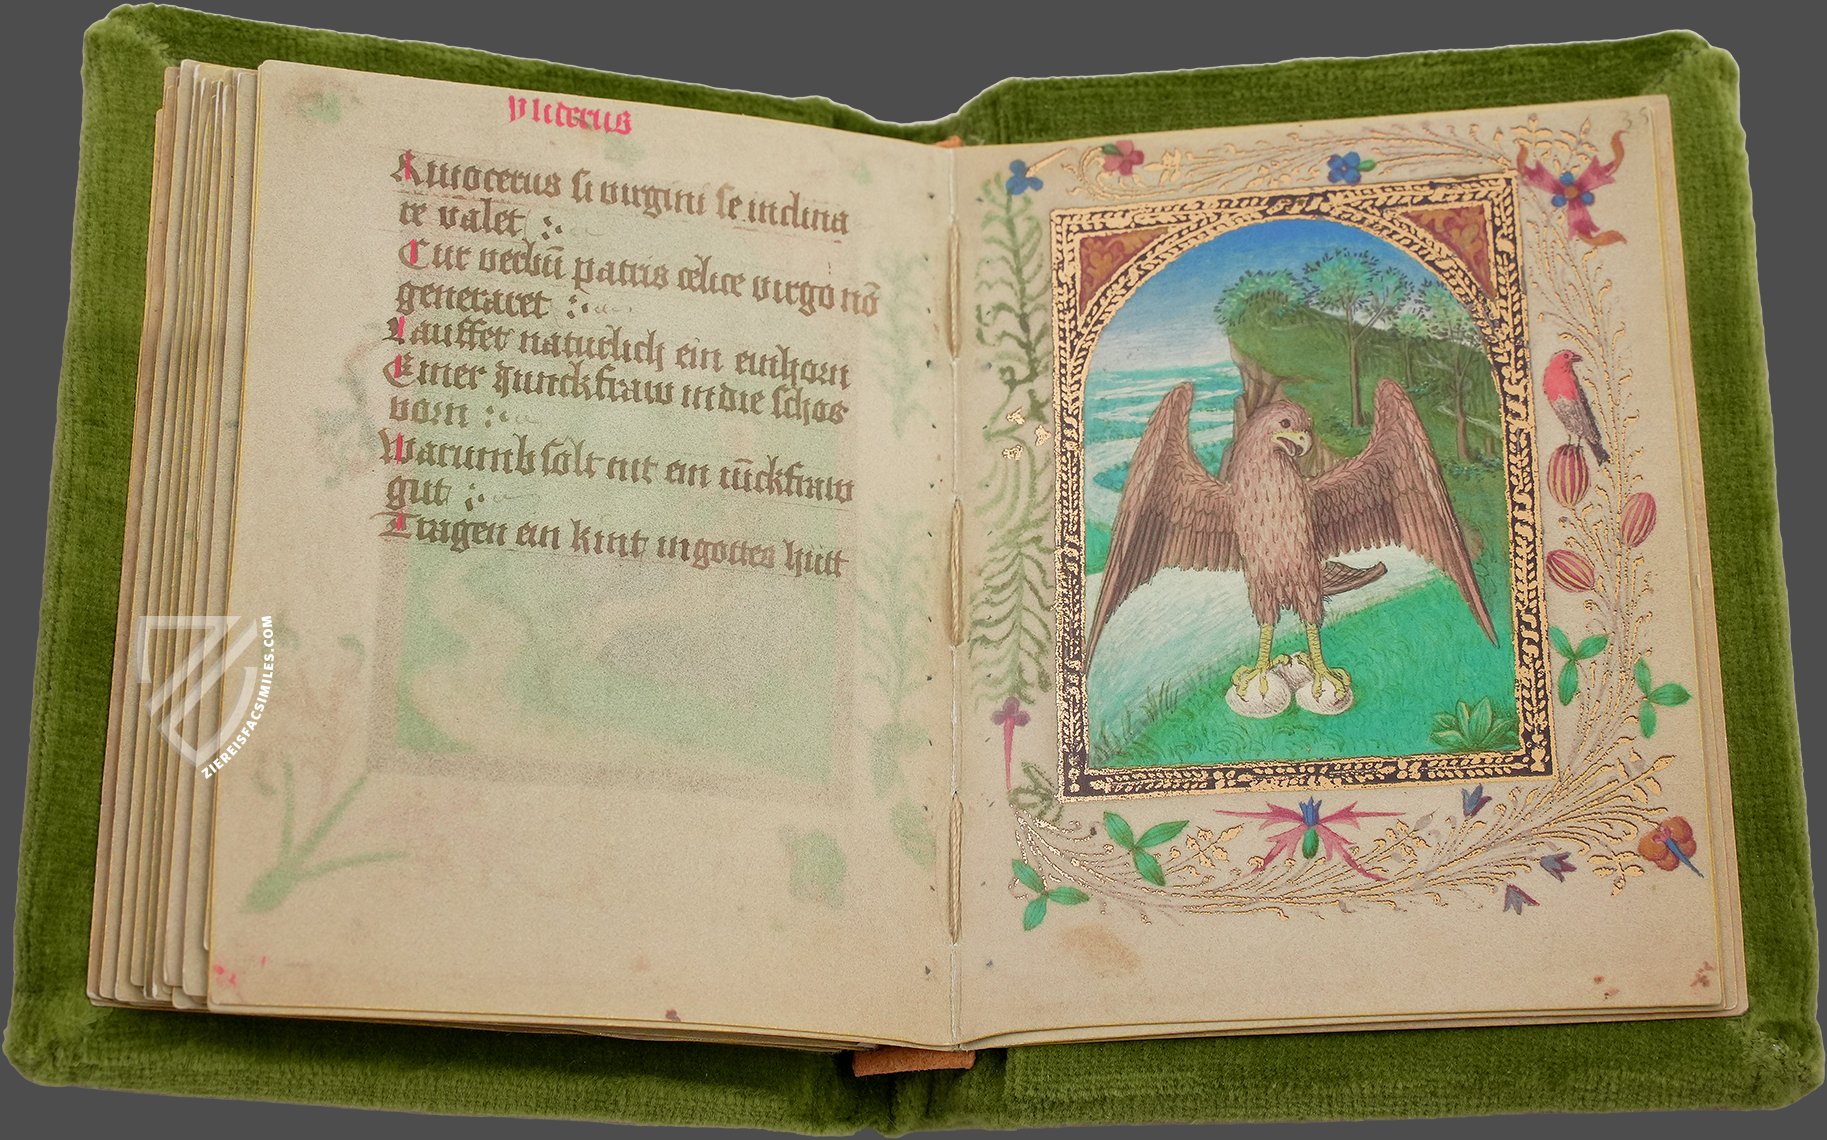 Alictrus
Rinocerus si virgini se inclina
re valet
Cur verbū patris celice virgo nō
generaret
Lauffet naturlich ein einhorn
Einer Junckfraw in die schos
vorn
Warumb solt nit ein iūckfraw
gut
Tragen ein kint in gottes hutt
35
ZIEREISFACSIMILES.COM